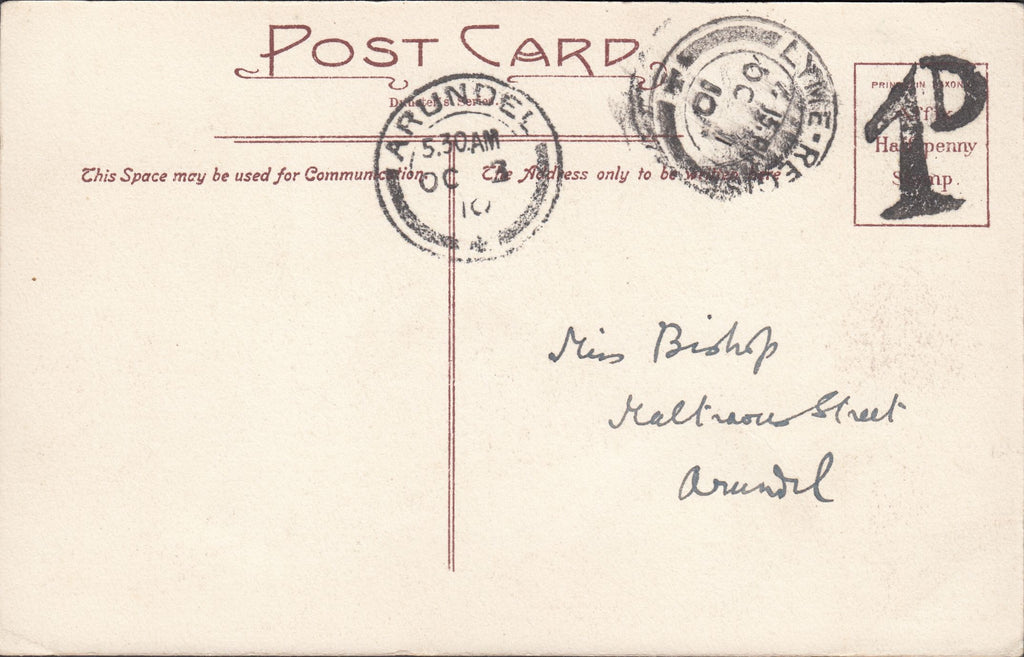 POST CARD
Dunster's Series
This Space may be used for Communication
The Address only to be written here
ARUNDEL
5.30 AM
OC 3
10
LYME-REGIS
OC
10
PRINTED IN SAXONY
Affix
Halfpenny
Stamp.
1D
Miss Bishop
Maltravers Street
Arundel